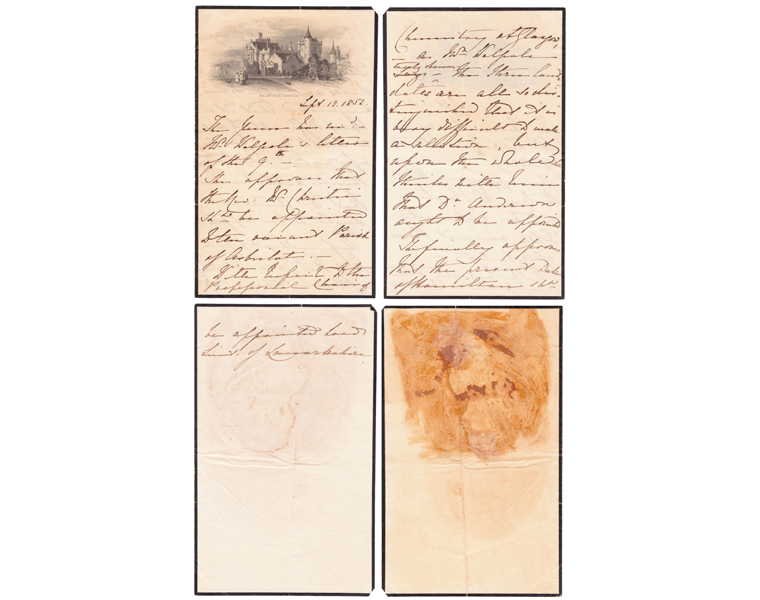 Sept 13. 1852.
The Queen has recd.
Mr. Walpole's letter
of the 9th. –
She approves that
the Rev. Mr. Christie
shd. be appointed
to the vacant Parish
of Arbirlot. –
With respect to the
Professorial Chair of
Chemistry at Glasgow,
– as Mr. Walpole
says – the three Candi
dates are all so dis
tinguished that it is
very difficult to make
a selection, but
upon the whole
thinks with him
that Dr. Anderson
ought to be appointed
She finally approves
that the present Duke
of Hamilton shd.
be appointed Lord
Lieut. of Lanarkshire